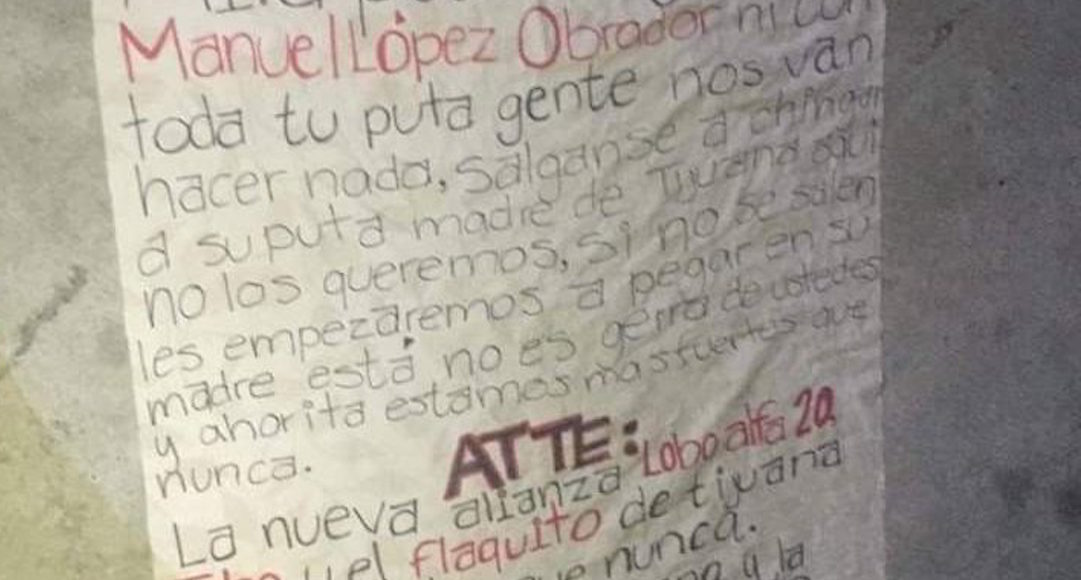 Manuel López Obrador ni con
toda tu puta gente nos van
hacer nada, salganse a chingar
a su puta madre de Tijuana aqui
no los queremos, si no se salen
les empezaremos a pegar en su
madre está no es gerra de ustedes
y ahorita estamos mas fuertes que
nunca.
ATTE: Lobo alfa 20
La nueva alianza
y el flaquito de tijuana
nunca.
y la